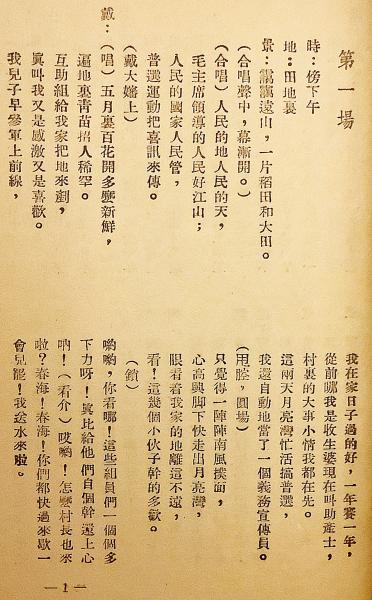 第一場
時：傍下午
地：田地裏
景：靄靄遠山，一片稻田和大田。
（合唱聲中，幕漸開。）
（合唱）人民的地人民的天，
毛主席領導的人民好江山；
人民的國家人民管，
普選運動把喜訊來傳。
（戴大嬸上）
戴：（唱）五月裏百花開多麼新鮮，
遍地裏青苗招人稀罕。
互助組給我家把地來剷，
眞叫我又是感激又是喜歡。
我兒子早參軍上前線，
我在家日子過的好，一年賽一年，
從前嘛我是收生婆現在叫助產士，
村裏的大事小情我都在先。
這兩天月亮灣忙活搞普選，
我還自動地當了一個義務宣傳員。
（甩腔，圓場）
只覺得一陣陣南風撲面，
心高興脚下快走出月亮灣，
眼看着我家的地離這不遠，
看！這幾個小伙子幹的多歡。
（鎖）
喲喲，你看哪！這些組員們一個個多
下力呀！眞比給他們自個幹還上心
吶！（看介）哎喲！怎麼村長也來
啦？春海！春海！你們都快過來歇一
會兒罷！我送水來啦。
—1—